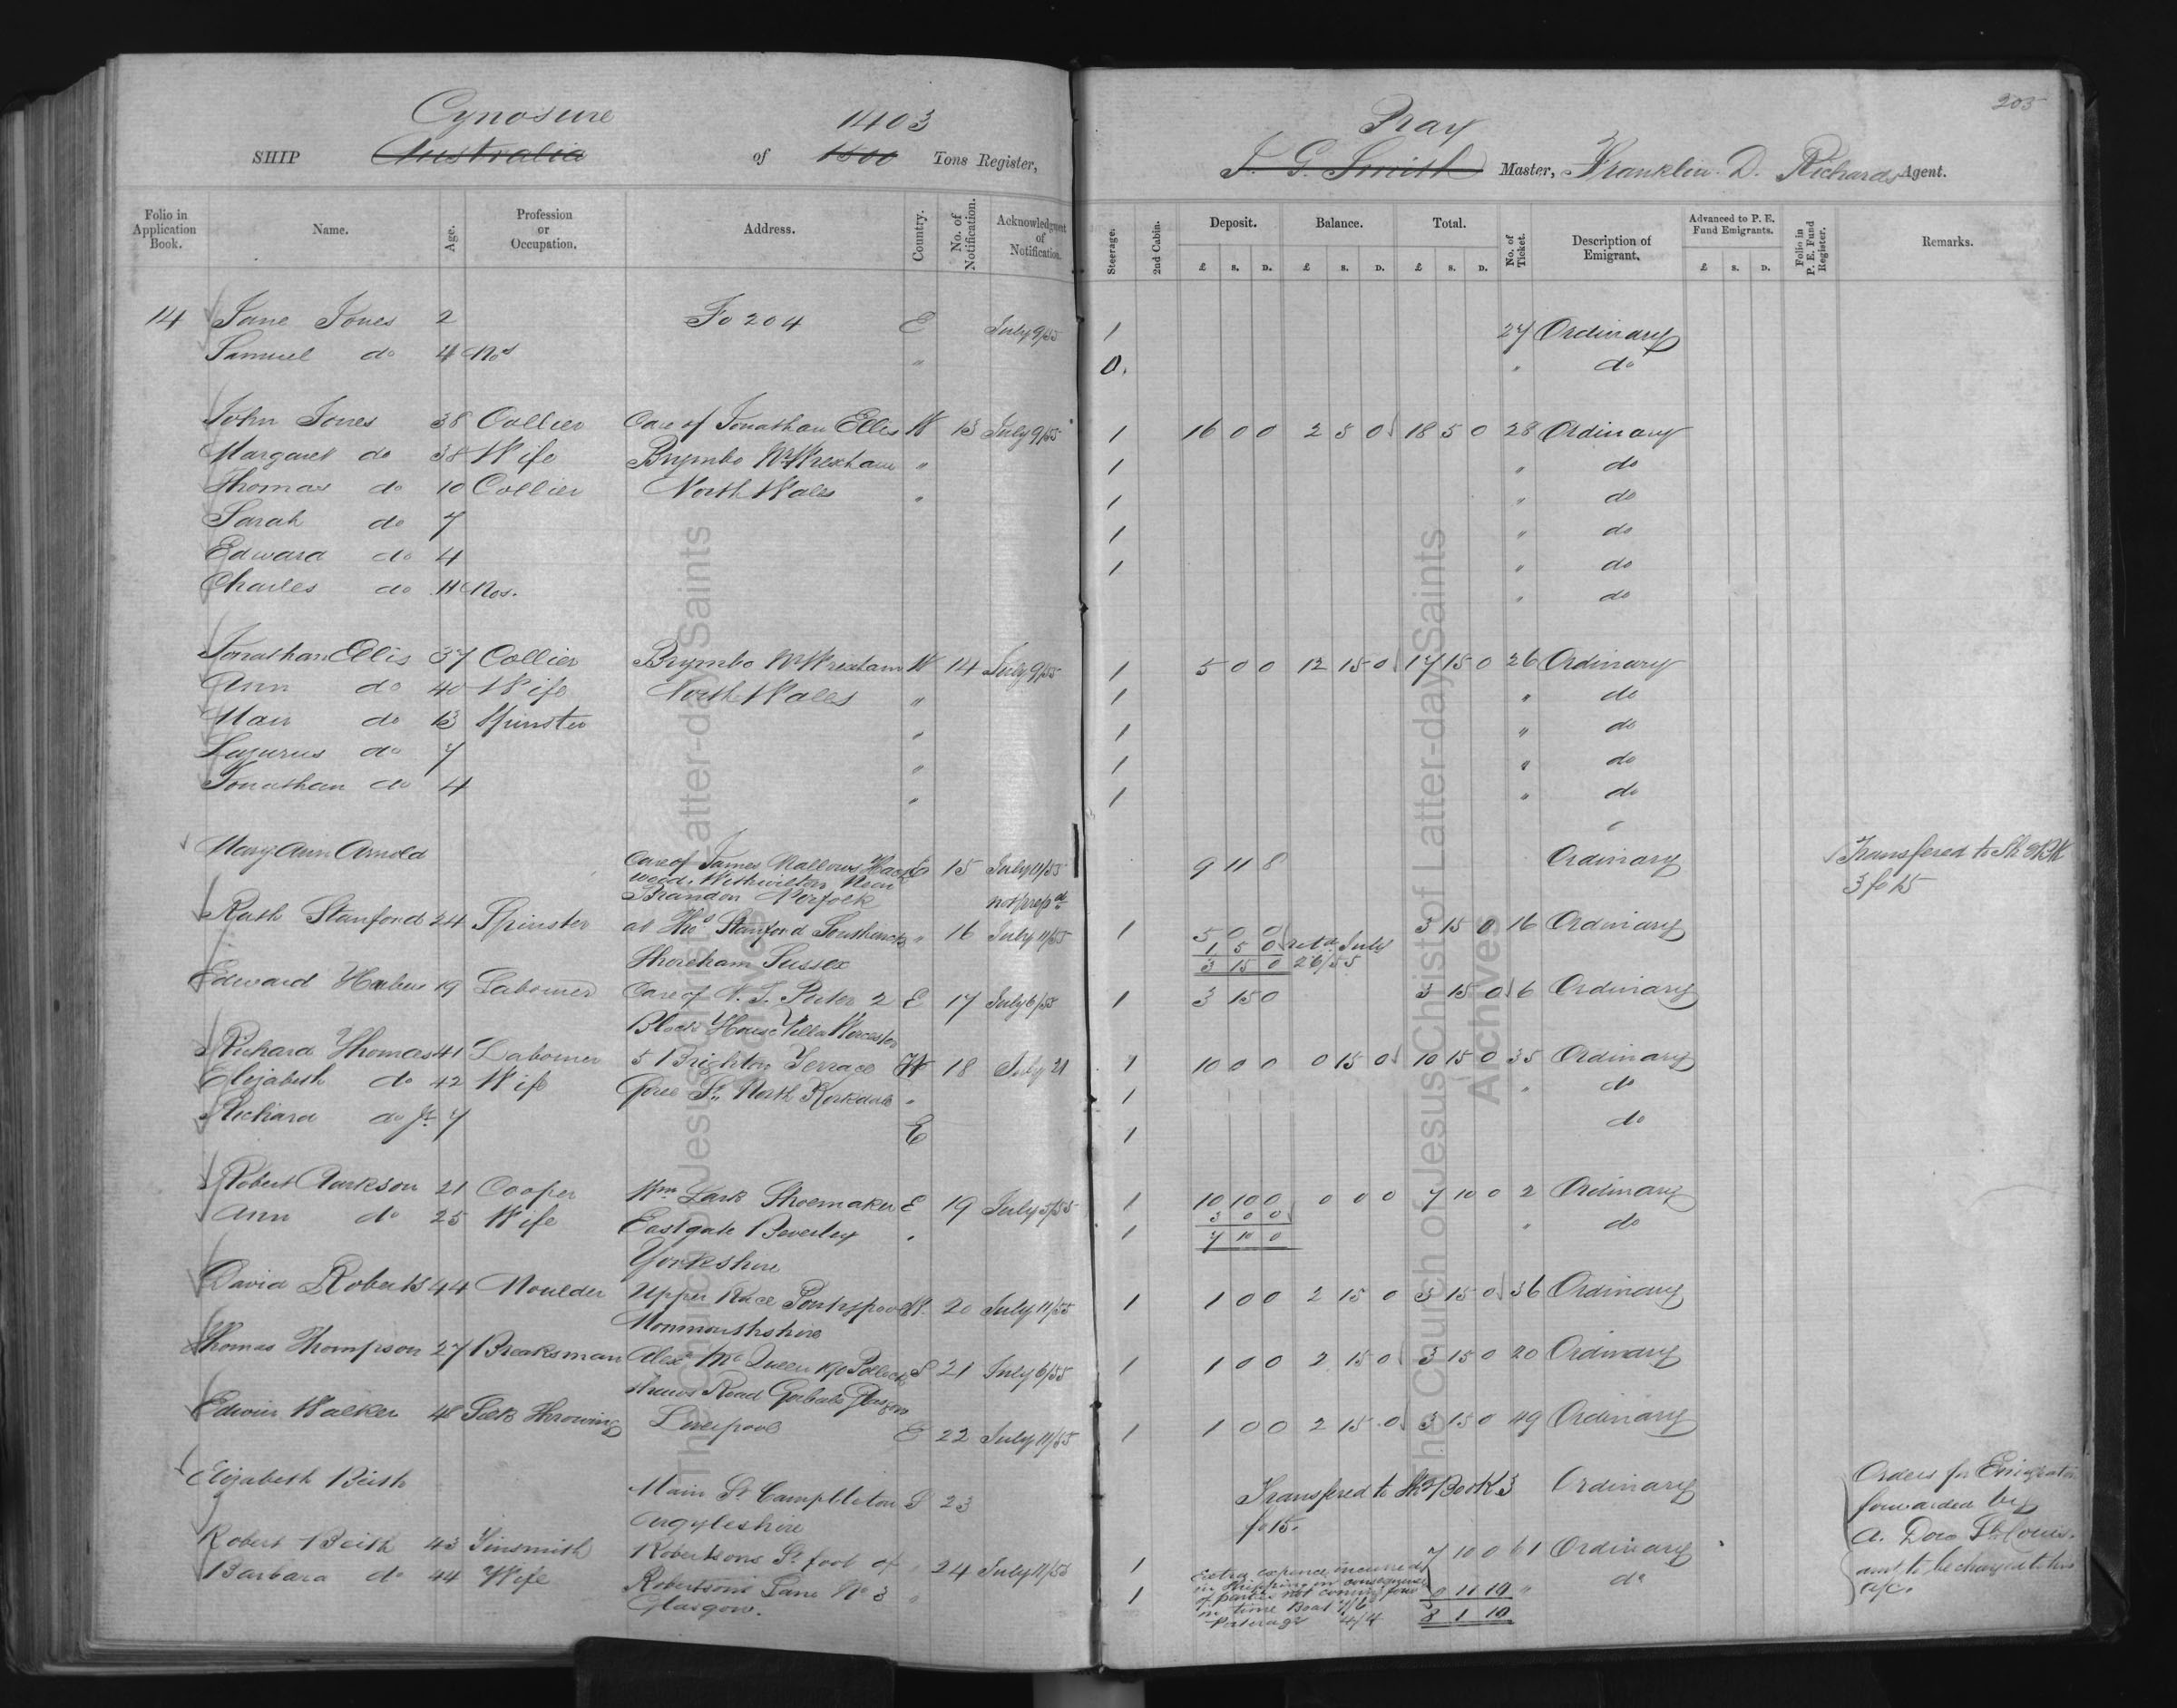 203
Cynosure 1403 Pray
SHIP Australia of 1300 Tons Register, J. G. Smith Master, Franklin D. Richards Agent.
Folio in Application Book. Name. Age. Profession or Occupation. Address. Country. No. of Notification. Acknowledgment of Notification. Steerage. 2nd Cabin. Deposit. Balance. Total. No. of Ticket. Description of Emigrant. Advanced to P. E. Fund Emigrants. Folio in P. E. Fund Register. Remarks.
£ S. D. £ S. D. £ S. D. £ S. D.
14 Jane Jones 2 Fo 204 E July 9/55 1 27 Ordinary
Samuel do 4 Mos " 0. " do
John Jones 38 Collier Care of Jonathan Ellis W 13 July 9/55 1 16 0 0 2 5 0 18 5 0 28 Ordinary
Margaret do 38 Wife Brymbo Nr Wrexham " 1 " do
Thomas do 10 Collier North Wales " 1 " do
Sarah do 7 1 " do
Edward do 4 1 " do
Charles do 11 Mos. " do
Jonathan Ellis 37 Collier Brymbo Nr Wrexham W 14 July 9/55 1 5 0 0 12 15 0 17 15 0 26 Ordinary
Ann do 40 Wife North Wales " 1 " do
Mary do 13 Spinster " 1 " do
Lazurus do 7 " 1 " do
Jonathan do 4 " 1 " do
Mary Ann Arnold Care of James Mallows E 15 July 11/55 9 11 8 Ordinary Transfered to Sh. BK
wood, Near 3 fo 15
Brandon Norfolk not prepd
Ruth Stanford 24 Spinster at Thos Stanford Southwick " 16 July 11/55 1 5 0 0 3 15 0 16 Ordinary
Shoreham Sussex 1 5 0 retd July
3 15 0 26/55
Edward 19 Labourer Care of 2 E 17 July 6/55 1 3 15 0 3 15 0 6 Ordinary
Block House Worcester
Richard Thomas 41 Labourer 51 Brighton Terrace W 18 July 21 1 10 0 0 0 15 0 10 15 0 35 Ordinary
Elizabeth do 42 Wife St. North Kirkdale " 1 " do
Richard do Jr 7 E 1 do
Robert Clarkson 21 Cooper Wm Lark Shoemaker E 19 July 5/55 1 10 10 0 0 0 0 7 10 0 2 Ordinary
Ann do 25 Wife Eastgate Beverley " 1 3 0 0 " do
Yorkshire 7 10 0
David Roberts 44 Moulder Upper Race Pontypool W. 20 July 11/55 1 1 0 0 2 15 0 3 15 0 36 Ordinary
Monmouthshire
Thomas Thompson 27 Breaksman Alexr McQueen Pollock S 21 July 6/55 1 1 0 0 2 15 0 3 15 0 20 Ordinary
shaws Road Gorbals Glasgow
Edwin Walker 48 Silk Throwing Liverpool E 22 July 11/55 1 1 0 0 2 15 0 3 15 0 49 Ordinary
Elizabeth Beith Main St. Campbleton S 23 Transfered to Sh Book 3 Ordinary Orders for Emigration
Argyleshire fo 15. forwarded by
A. Dow St. Louis.
Robert Beith 43 Tinsmith Robertsons St. foot of " 24 July 11/55 1 7 10 0 61 Ordinary amt to be charged to his
Barbara do 44 Wife Robertsons Lane No 3 " 1 0 11 10 " do a/c.
Glasgow. 8 1 10
Extra expence incurred
in shipping in consequence
of parties not coming
in time Boat 7/6
Paterage 4/4
The Church of Jesus Christ of Latter-day Saints
Archives
The Church of Jesus Christ of Latter-day Saints
Archives